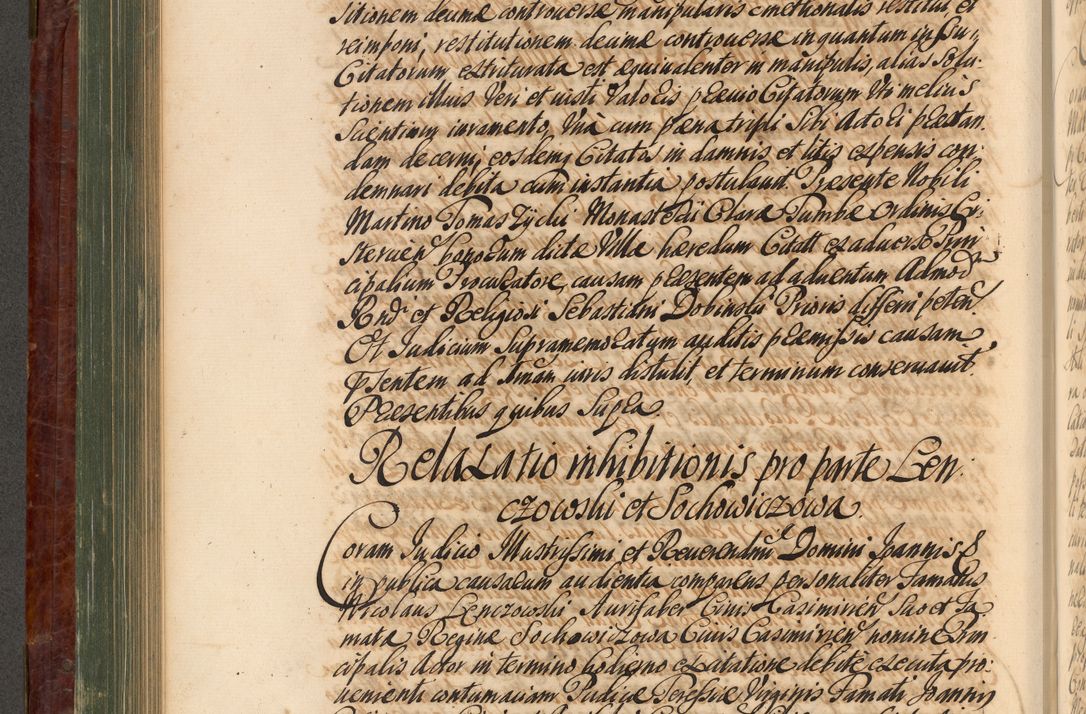 sitionem decimæ controversæ manipularis cmethonalis restitui et
reimponi, restitutionem decimæ controversæ inquantum in fru„
Citatorum extriturata est æquivalenter in manipulis, alias Solu„
tionem illius Veri et iusti Valoris præuio Citatorum Vti melius
Scientium iuramento, Vnà cum pæna tripli Sibi Actori præstan„
dam decerni, eosdemq Citatos in damnis et litis expensis con„
demnari debita cum instantia postulauit. Præsente Nobili
Martino Tomaszycki Monasterii Claræ Tumbæ Ordinis Ci„
stercien bonorum dictæ Villæ hæredum Citatt ex aduerso Prin
cipalium Procuratore, causam præsentem ad aduentum Admod
Rndi et Religiosi Sebastiani Dobinski Prioris differri peten
Et Iudicium Supramemoratum auditis præmissis causam
pñsentem ad 1mam iuris distulit, et terminum conseruauit.
Præsentibus quibus Supra.
Relaxatio inhibitionis pro parte Len„
czowski et Sochowiczowa.
Coram Iudicio Illustrissimi et Reuerendmi Domini Joannis &
in publica causarum audientia comparens personaliter Famatus
Nicolaus Lenczowski Aurifaber Ciuis Casimirien Suo et Fa„
matæ Reginæ Sochowiczowa Ciuis Casimirien nomine Prin
cipalis Actor in termino hodierno ex citatione debitè executa pro„
uenienti contumaciam Pudicæ Teresiæ Virginis Famati Joannis